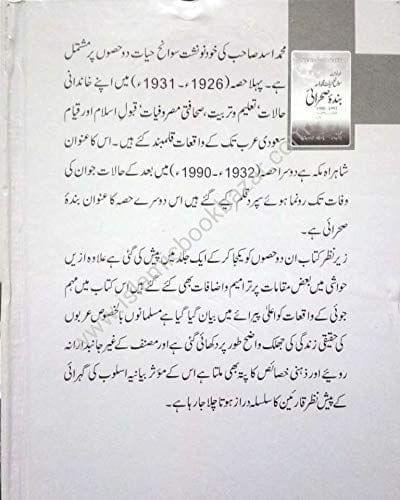 محمد اسد صاحب کی خود نوشت سوانح حیات دو حصوں پر مشتمل
ہے۔ پہلا حصہ (1926ء۔1931ء) میں اپنے خاندانی
حالات، تعلیم و تربیت، صحافتی مصروفیات، قبول اسلام اور قیام
سعودی عرب تک کے واقعات قلمبند کئے ہیں۔ اس کا عنوان
شاہراہ مکہ ہے دوسرا حصہ (1932ء۔1990ء) میں بعد کے حالات جو ان کی
وفات تک رونما ہوئے سپرد قلم کیے گئے ہیں اس دوسرے حصہ کا عنوان بندۂ
صحرائی ہے۔
زیر نظر کتاب ان دو حصوں کو یکجا کر کے ایک جلد میں پیش کی گئی ہے علاوہ ازیں
حواشی میں بعض مقامات پر ترامیم و اضافات بھی کئے گئے ہیں اس کتاب میں مہم
جوئی کے واقعات کو اعلیٰ پیرائے میں بیان گیا گیا ہے مسلمانوں بالخصوص عربوں
کی حقیقی زندگی کی جھلک واضح طور پر دکھائی گئی ہے اور مصنف کے غیر جانبدارانہ
رویئے اور ذہنی خصائص کا پتہ بھی ملتا ہے اس کے مؤثر بیانیہ اسلوب کی گہرائی
کے پیش نظر قارئین کا سلسلہ دراز ہوتا چلا جا رہا ہے۔
بندۂ صحرائی
www.islamicbookbazar.com